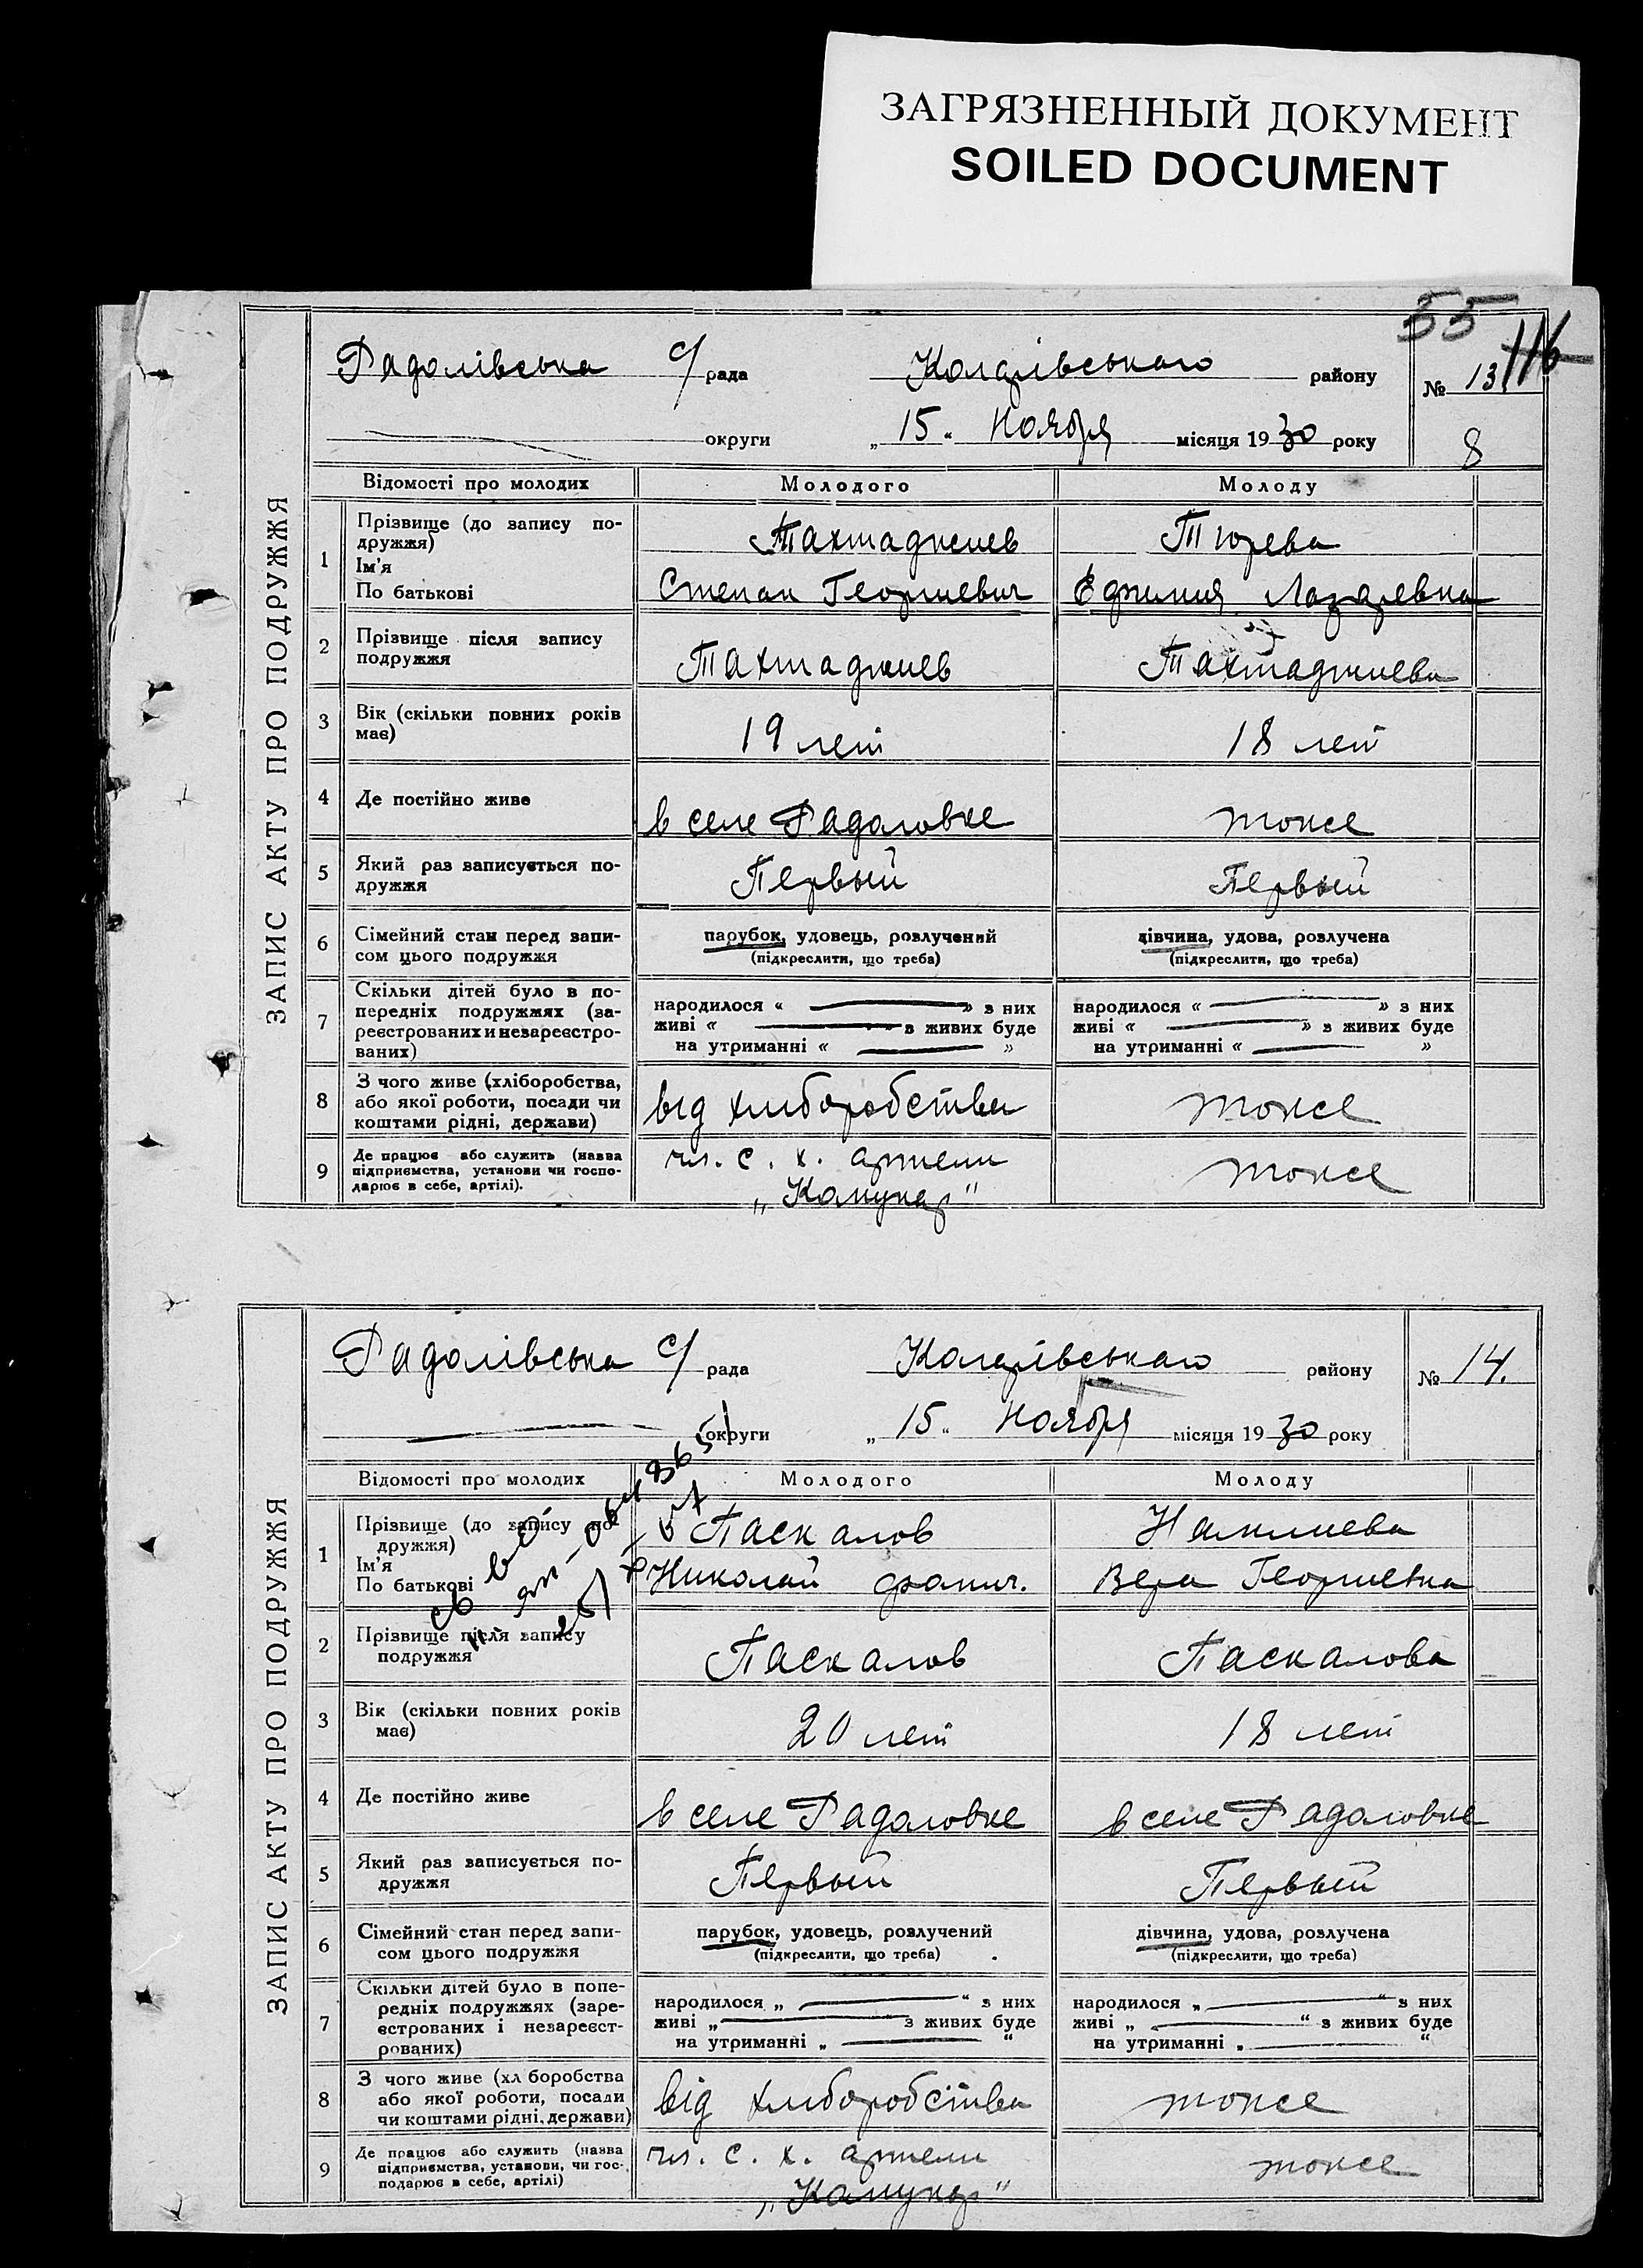 ЗАГРЯЗНЕННЫЙ ДОКУМЕНТ
SOILED DOCUMENT
55
116
ЗАПИС АКТУ ПРО ПОДРУЖЖЯ
Радолівська с/рада Коларівського району № 13
округи „15" Ноября місяця 1930 року 8
Відомості про молодих Молодого Молоду
1 Прізвище (до запису по-
дружжя) Тахтаджиев Тюрева
Ім'я
По батькові Степан Георгиевич Ефимия Лазаревна
2 Прізвище після запису
подружжя Тахтаджиев Тахтаджиева
3 Вік (скільки повних років
має) 19 лет 18 лет
4 Де постійно живе в селе Радоловке тоже
5 Який раз записується по-
дружжя Первый Первый
6 Сімейний стан перед запи- парубок, удовець, розлучений дівчина, удова, розлучена
сом цього подружжя (підкреслити, що треба) (підкреслити, що треба)
7 Скільки дітей було в по-
передніх подружжях (за- народилося « » з них народилося « » з них
реєстрованих и незареєстро- живі « з живих буде живі « » з живих буде
ваних) на утриманні « » на утриманні « »
8 З чого живе (хліборобства,
або якої роботи, посади чи від хлиборобства тоже
коштами рідні, держави)
9 Де працює або служить (назва чл. с. х. артели тоже
підприємства, установи чи госпо-
дарює в себе, артілі). „Комунар"
ЗАПИС АКТУ ПРО ПОДРУЖЖЯ
Радолівська с/рада Коларівського району № 14.
округи „15" Ноября місяця 1930 року
Відомості про молодих Молодого Молоду
1 Прізвище (до запису по-
дружжя) Паскалов
Ім'я
По батькові Николай Вера Георгиевна
2 Прізвище після запису
подружжя Паскалов Паскалова
3 Вік (скільки повних років
має) 20 лет 18 лет
4 Де постійно живе в селе Радоловке в селе Радоловке
5 Який раз записується по-
дружжя Первый Первый
6 Сімейний стан перед запи- парубок, удовець, розлучений дівчина, удова, розлучена
сом цього подружжя (підкреслити, що треба) (підкреслити, що треба)
7 Скільки дітей було в попе-
редніх подружжях (заре- народилося „ " з них народилося „ " з них
єстрованих і незареєст- живі „ з живих буде живі „ " з живих буде
рованих) на утриманні „ " на утриманні „ "
8 З чого живе (хл боробства
або якої роботи, посади від хлиборобства тоже
чи коштами рідні, держави)
9 Де працює або служить (назва чл. с. х. артели тоже
підприємства, установи, чи гос-
подарює в себе, артілі) „Комунар"